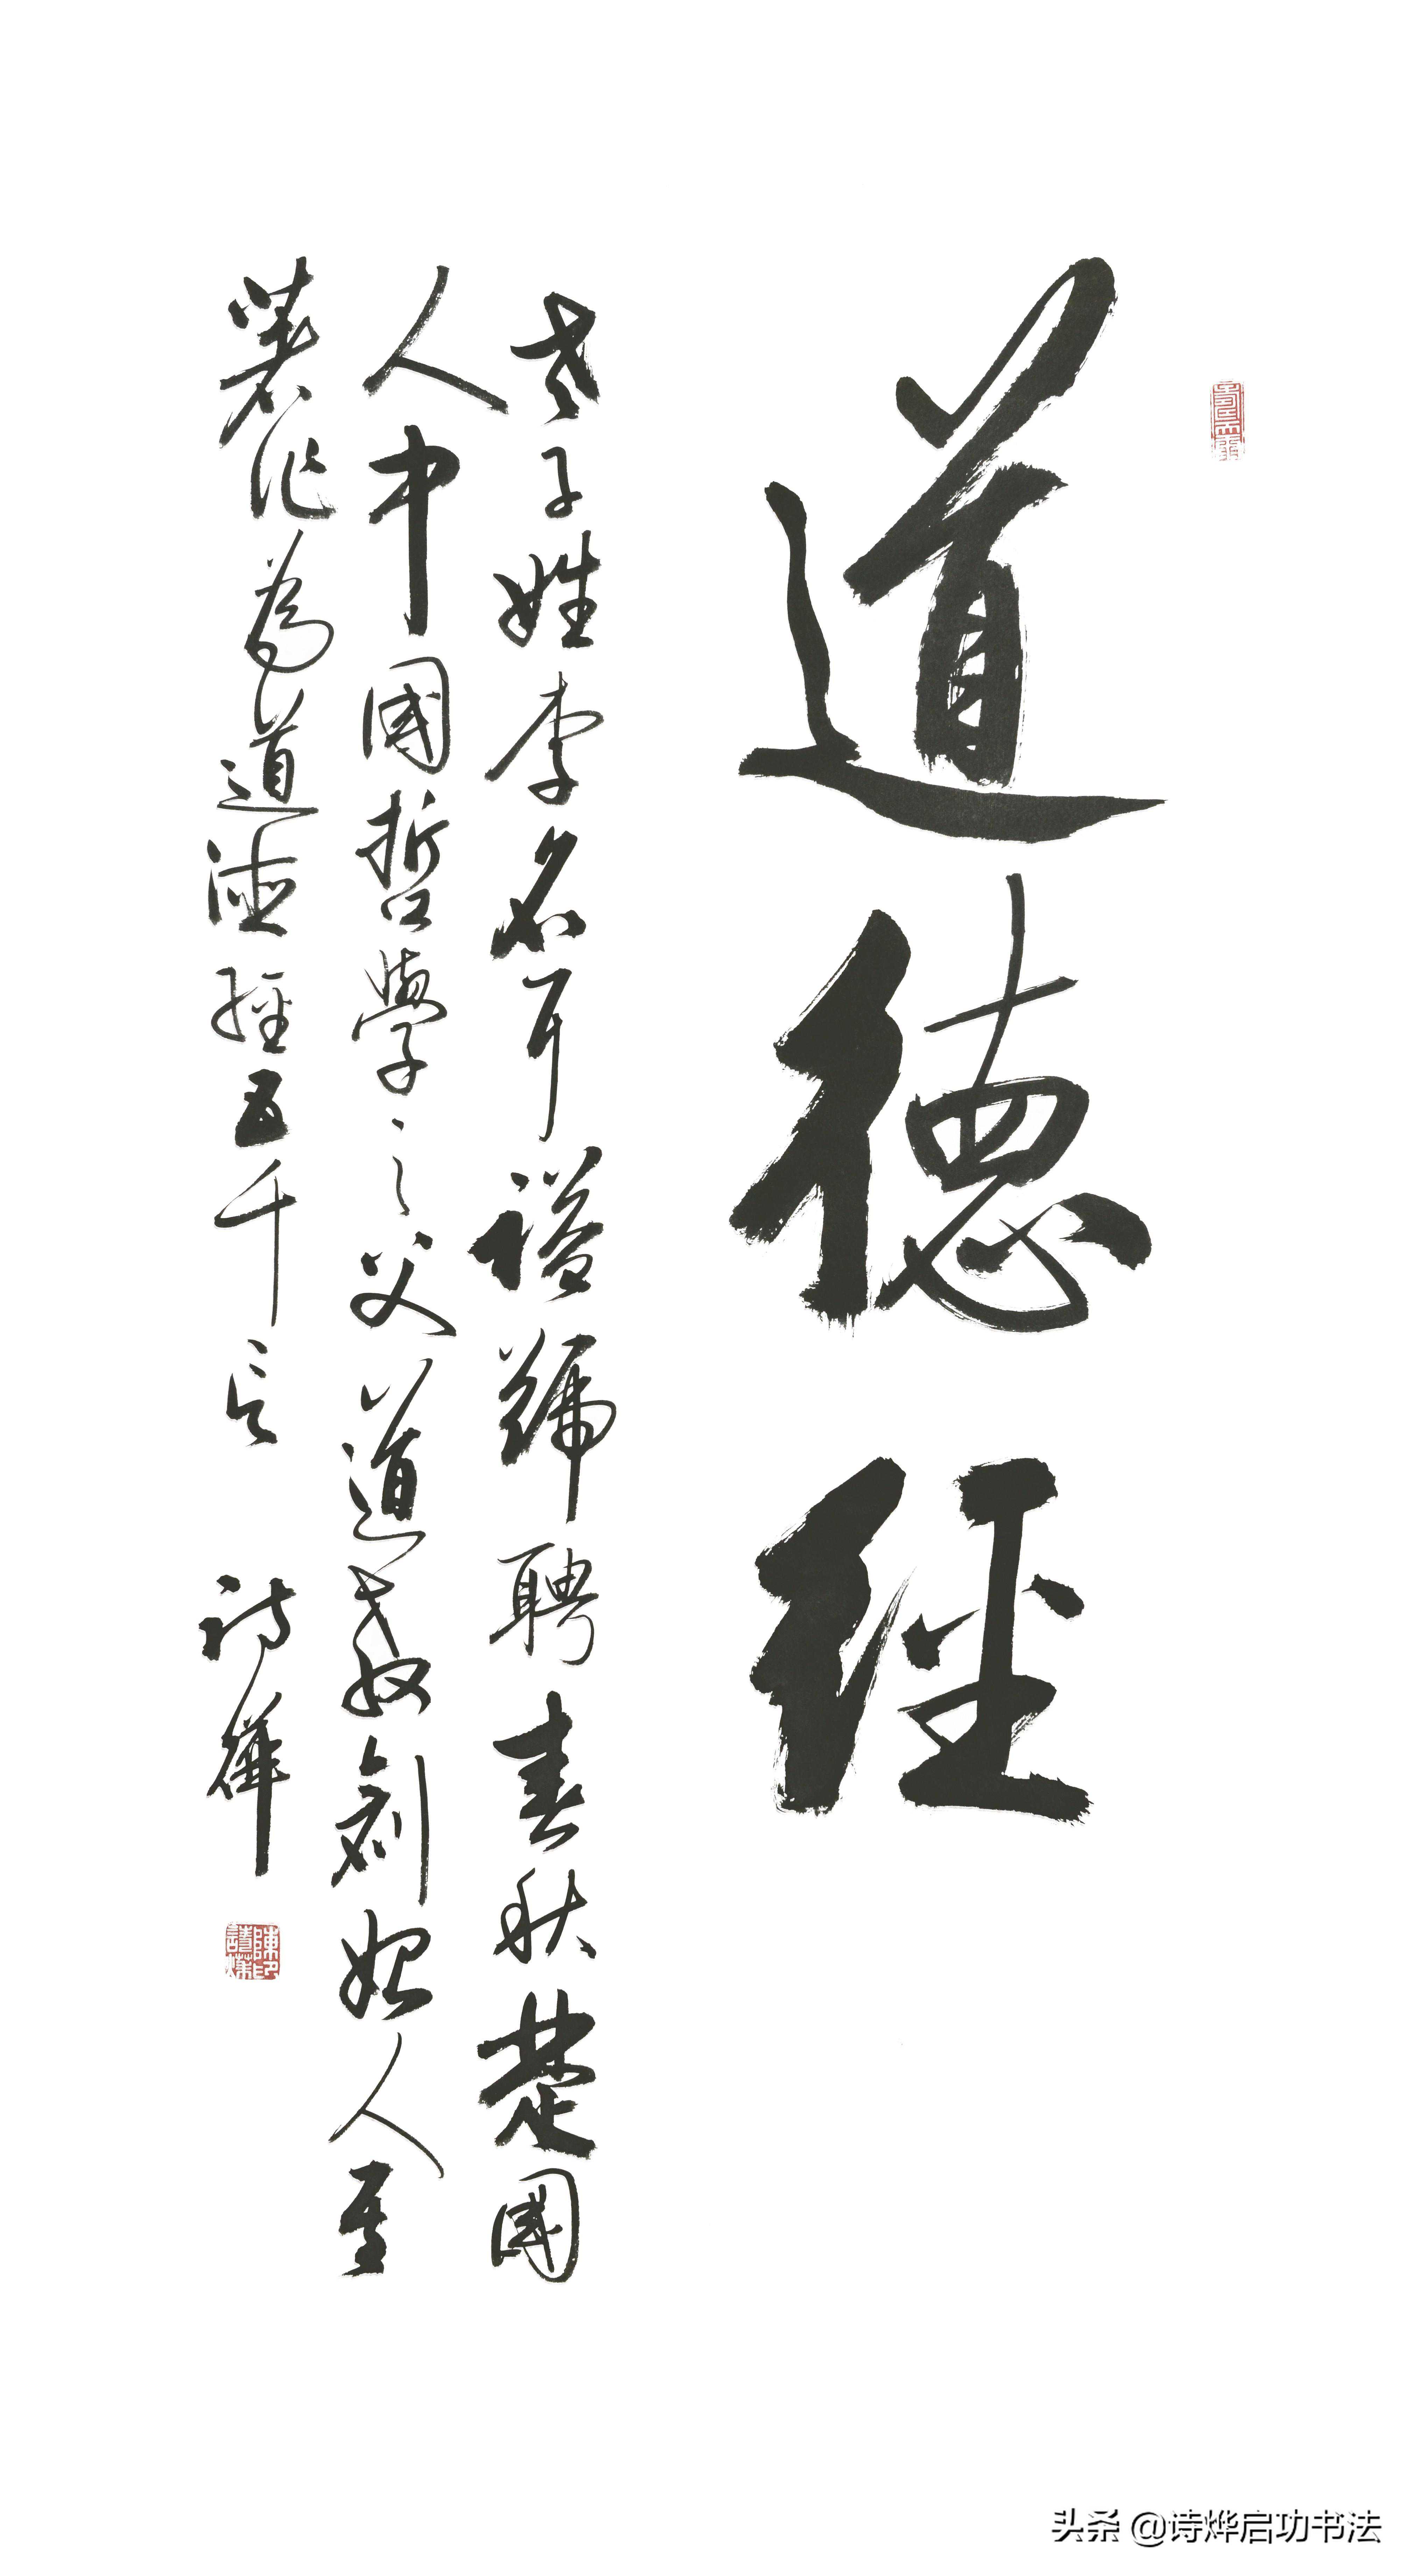 道德经
老子姓李名耳諡號聃春秋楚國
人中國哲學之父道教創始人其
著作為道德經五千言 詩燁
陳印詩燁
头条 @诗烨启功书法